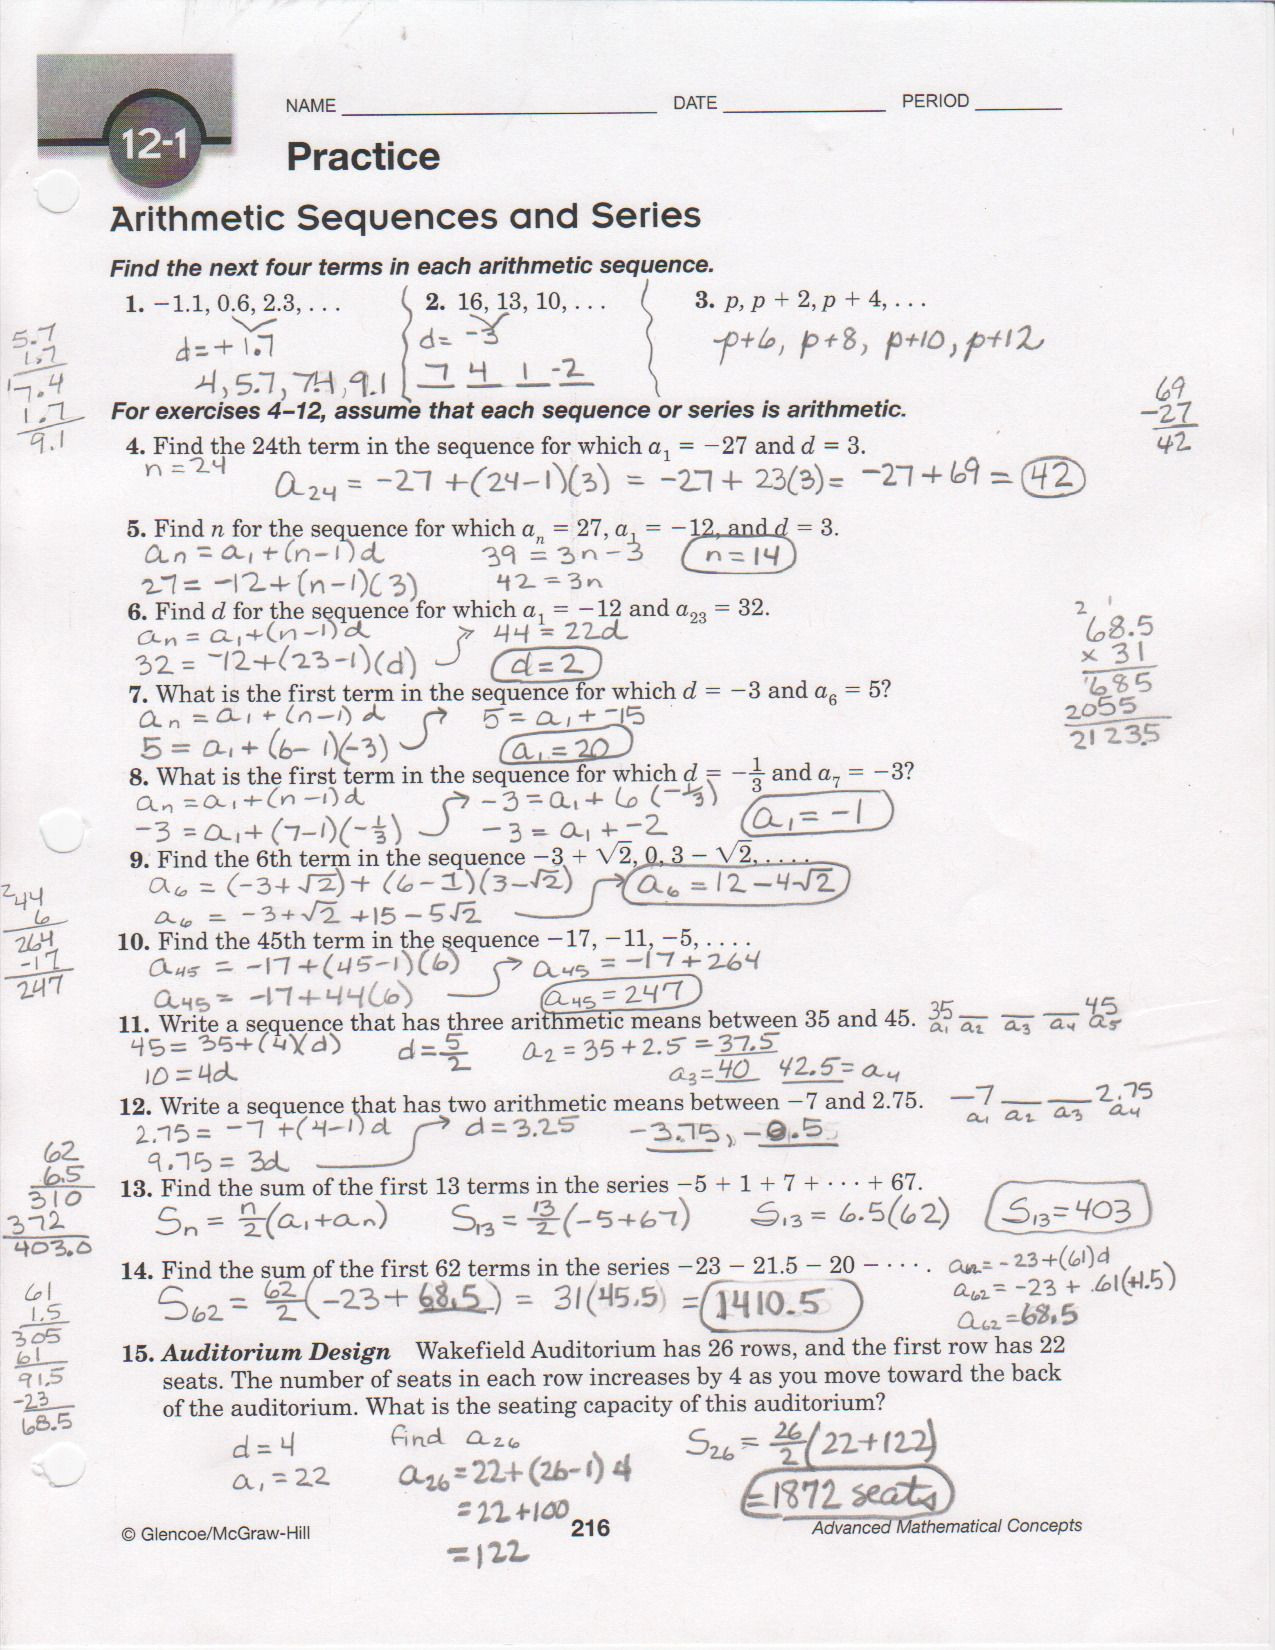 NAME ____ DATE ____ PERIOD ____
12-1
Practice
Arithmetic Sequences and Series
Find the next four terms in each arithmetic sequence.
1. −1.1, 0.6, 2.3, . . .
d=+1.7
4, 5.7, 7.4, 9.1
2. 16, 13, 10, . . .
d= -3
7 4 1 -2
3. p, p + 2, p + 4, . . .
p+6, p+8, p+10, p+12
5.7
1.7
7.4
1.7
9.1
For exercises 4–12, assume that each sequence or series is arithmetic.
69
-27
42
4. Find the 24th term in the sequence for which a₁ = −27 and d = 3.
n=24
a₂₄ = -27 +(24-1)(3) = -27+ 23(3)= -27+69 = 42
5. Find n for the sequence for which aₙ = 27, a₁ = −12, and d = 3.
aₙ = a₁+(n-1)d 39 = 3n-3 n=14
27= -12+(n-1)(3) 42=3n
6. Find d for the sequence for which a₁ = −12 and a₂₃ = 32.
aₙ = a₁+(n-1)d 44=22d
32= -12+(23-1)(d) d=2
2 1
68.5
x 31
685
2055
2123.5
7. What is the first term in the sequence for which d = −3 and a₆ = 5?
aₙ = a₁+(n-1)d 5=a₁+-15
5=a₁+(6-1)(-3) a₁=20
8. What is the first term in the sequence for which d = −1/3 and a₇ = −3?
aₙ=a₁+(n-1)d -3=a₁+6(-1/3)
-3=a₁+(7-1)(-1/3) -3=a₁+-2 a₁=-1
9. Find the 6th term in the sequence −3 + √2, 0, 3 − √2, . . . .
a₆ = (-3+√2)+(6-1)(3-√2) a₆=12-4√2
a₆ = -3+√2+15-5√2
2
44
6
264
-17
247
10. Find the 45th term in the sequence −17, −11, −5, . . . .
a₄₅ = -17+(45-1)(6) a₄₅=-17+264
a₄₅= -17+44(6) a₄₅=247
11. Write a sequence that has three arithmetic means between 35 and 45. 35 __ __ __ 45
a₁ a₂ a₃ a₄ a₅
45=35+(4)(d) d=5/2 a₂=35+2.5=37.5
10=4d a₃=40 42.5=a₄
12. Write a sequence that has two arithmetic means between −7 and 2.75. -7 __ __ 2.75
a₁ a₂ a₃ a₄
2.75= -7+(4-1)d d=3.25 -3.75, -0.5
9.75=3d
62
6.5
310
372
403.0
13. Find the sum of the first 13 terms in the series −5 + 1 + 7 + · · · + 67.
Sₙ = n/2(a₁+aₙ) S₁₃=13/2(-5+67) S₁₃=6.5(62) S₁₃=403
14. Find the sum of the first 62 terms in the series −23 − 21.5 − 20 − · · · .
S₆₂ = 62/2(-23+68.5) = 31(45.5) = 1410.5
-23+(61)d
a₆₂= -23+.61(+1.5)
a₆₂=68.5
61
1.5
305
61
91.5
-23
68.5
15. Auditorium Design Wakefield Auditorium has 26 rows, and the first row has 22
seats. The number of seats in each row increases by 4 as you move toward the back
of the auditorium. What is the seating capacity of this auditorium?
d=4
a₁=22
find a₂₆
a₂₆=22+(26-1)4
=22+100
=122
S₂₆=26/2(22+122)
=1872 seats
© Glencoe/McGraw-Hill 216 Advanced Mathematical Concepts